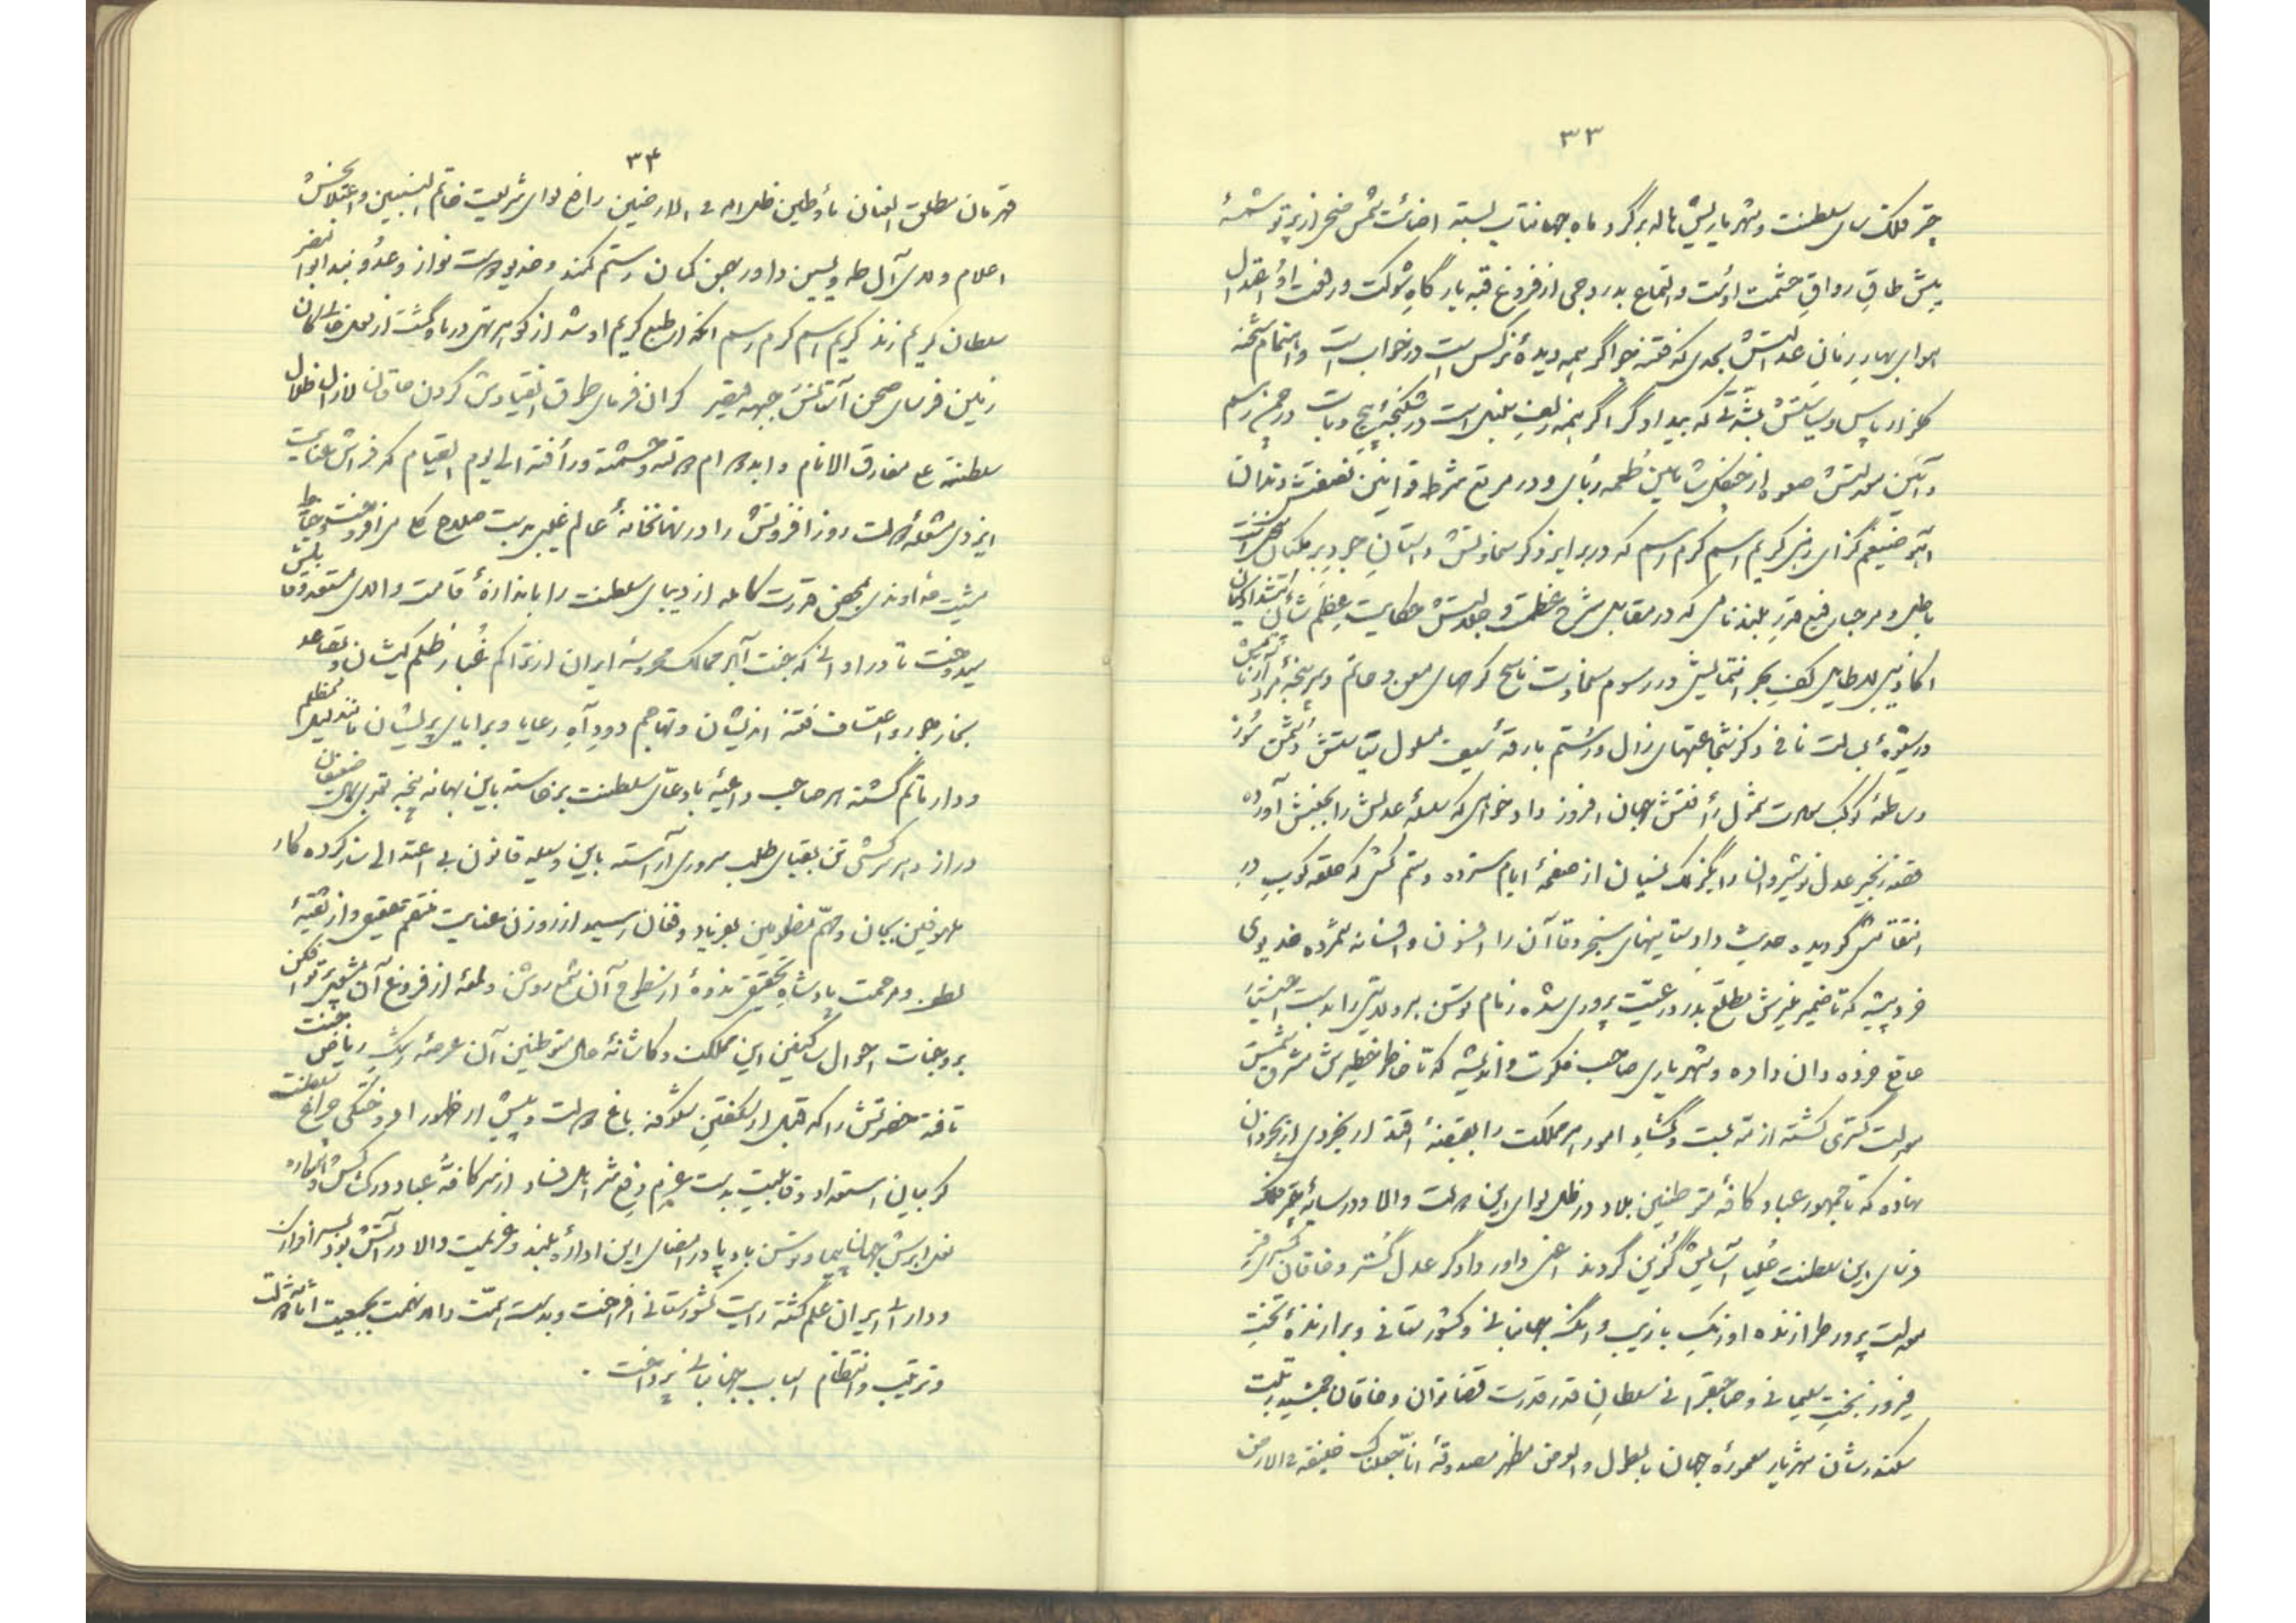 ۳۳
چتر فلک سای سلطنت و شهریاریش هاله بر گرد ماه جهانتاب بسته اضائت شمس ضحی از پرتو شمسهٔ
پیش طاق رواق حشمت اوست و التماع بدر دجی از فروغ قبه بارگاه شوکت و رفعت او اعتدال
هوای بهار زمان عدالتش بحدی که فتنه جو اگر همه دیدهٔ نرگس است در خواب است و اهتمام شحنه
گلزار پاس و سیاستش بمثابتی که بیدادگر اگر همه زلف سنبل است در شکنجهٔ پیچ و تاب در چمن رسم
و آئین معدلتش صعوه از چنگل شاهین طعمه ربای و در مرتع شرط قوانین نصفتش دندان
کریم اسم کرم رسم که در برابر ذکر سخاوتش داستان جود
باطل و مرحبا رفیع قدر بلند نامی که در مقابل شرح عظمت و جلالتش حکایت عظم شأن
اکاذیب لاطایل کف بحر انتمایش در رسوم سخاوت ناسخ کرمهای معن و حاتم و سرپنجهٔ
در شیوهٔ بسالت نافی ذکر شجاعتهای زال و رستم بارقهٔ سیف مسلول سیاستش دشمن سوز
و ساطعهٔ کوکب سعادت شمول رأفتش جهان افروز دادخواهی که سلسلهٔ عدلش را بجنبش آورده
قصهٔ زنجیر عدل نوشیروان را بگزلک نسیان از صفحهٔ ایام سترده و ستم کشی که حلقه کوب در
انتقامش گردیده حدیث دادستانیهای سنجر و قاآن را افسون و افسانه شمرده خدیوی
خرد پیشه که تا ضمیر منیرش مطلع بدر رعیت پروری شده زمام توسن هر ولایتی را بدست
صانع خرده دان داده و شهریاری صاحب فکرت و اندیشه که تا خاطر خطیرش مشرق شمس
معدلت گستری گشته ازمه بست و گشاد امور هر مملکت را بقبضهٔ اقتدار بخردی از بخردان
نهاده که تا جمهور عباد و کافهٔ متوطنین بلاد در ظل لوای این دولت والا و در سایهٔ چتر فلک
فرسای این سلطنت علیا آسایش گزین گردند اعنی داور دادگر عدل گستر و خاقان کسری فر
معدلت پرور طرازنده اورنگ بازیب و رنگ جهانبانی و کشورستانی و برازندهٔ تخت
فیروز بخت سلیمانی و صاحبقرانی سلطان قدر قدرت قضا توان و خاقان جمشید رتبت
سکندرشان شهریار معمورهٔ جهان بالطول والعرض مظهر مصدوقهٔ انا جعلناک خلیفة فی الارض
۳۴
قهرمان مطلق العنان ماء و طین ظل الله فی الارضین رافع لوای شریعت خاتم النبیین و اعتلا بخش
اعلام ولای آل طه و یسین داور بهمن کمان رستم کمند و خدیو دوست نواز و عدو بند ابو النصر
سلطان کریم زند کریم اسم کرم رسم آنکه از طبع کریم او شد از گوهر تهی دریا و گشت از لعل خالی کان
زمین فرسای صحن آستانش جبههٔ قیصر گران فرمای طوق انقیادش گردن خاقان لازال ظلال
سلطنته علی مفارق الانام و ابد دوام دولته و حشمته و رأفته الی یوم القیام که فراش عنایت
ایزدی مشعلهٔ دولت روز افزونش را در نهانخانهٔ عالم غیب بدست صلاح کار می افروخت و خیاط
مشیت خداوندی بمحض قدرت کامله از دیبای سلطنت را باندازهٔ قامت والای مستعد
میدوخت تا در اوانی که جنت آباد ممالک محروسهٔ ایران از تراکم غبار ظلم کیشان و تصاعد
بخار جور و اعتساف فتنه اندیشان و تهاجم دود آه رعایا و برایای پریشان مانند لیل مظلم
و دار ماتم گشته هر صاحب داعیهٔ بادعای سلطنت برخاسته باین بهانه پنجه تعدی بمال ضعیفان
دراز و هر سرکشی تن بقبای طلب سروری آراسته باین وسیله قانون بی اعتدالی ساز کرده کار
ملهوفین بجان و مهم مظلومین بفریاد و فغان رسید از روزن عنایت منتقم حقیقی و از ثقبهٔ
لطف و مرحمت پادشاه تحقیقی ذرهٔ از سطوح آن شمع روشن و لمعهٔ از فروغ آن
بر وجنات احوال ساکنین این مملکت و کاشانهٔ حال متوطنین آن عرصه رشک ریاض جنت
تافته حضرتش را که قبل از شکفتن شکوفه باغ دولت و پیش از ظهور افروختگی چراغ سلطنت
گریبان استعداد و قابلیت بدست عزم رفع شر اهل فساد از سر کافهٔ عباد در کشاکش و همواره
نعل ابرش جهان پیما و توسن باد پا در امضای این ارادهٔ بلند و عزیمت والا در آتش بود
و دارائی ایران علم گشته رایت کشورستانی افراخت و بدست همت والا نهمت بجمعیت
و ترتیب و انتظام اسباب جهانبانی پرداخت .